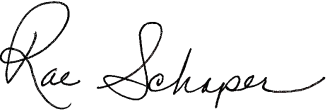 Rae Schaper